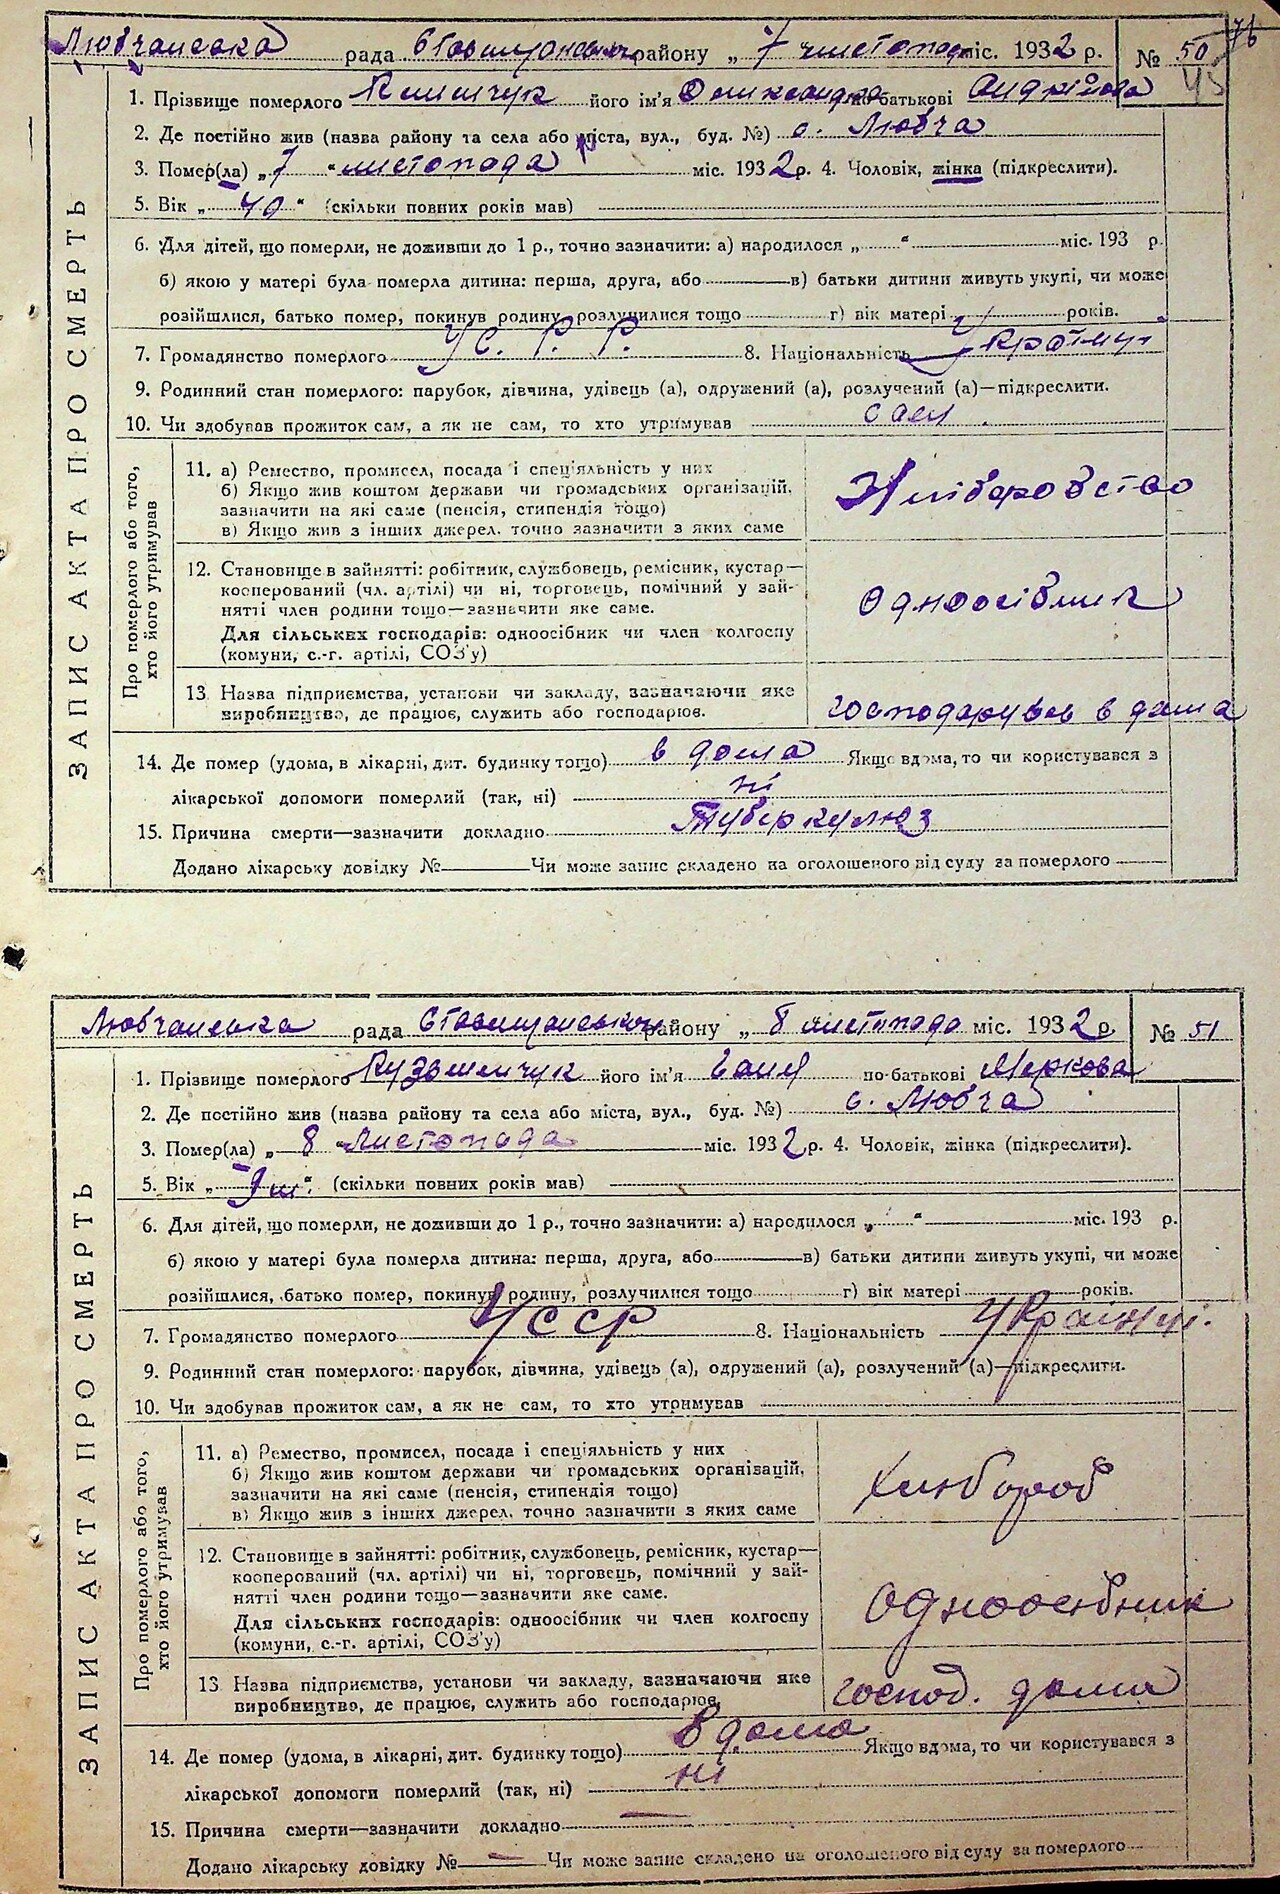 76
Любчанська рада Ставищанськ району „ 7 листопад міс. 1932 р. № 50
45
1. Прізвище померлого його ім'я Олександра по батькові Андрійова
2. Де постійно жив (назва району та села або міста, вул., буд. №) с. Любча
3. Помер(ла) „ 7 “ листопада міс. 1932 р. 4. Чоловік, жінка (підкреслити).
5. Вік „ 40 “ (скільки повних років мав)
6. Для дітей, що померли, не доживши до 1 р., точно зазначити: а) народилося „ “ міс. 193 р.
б) якою у матері була померла дитина: перша, друга, або в) батьки дитини живуть укупі, чи може
розійшлися, батько помер, покинув родину, розлучилися тощо г) вік матері років.
7. Громадянство померлого У С. Р. Р. 8. Національність
9. Родинний стан померлого: парубок, дівчина, удівець (а), одружений (а), розлучений (а)—підкреслити.
10. Чи здобував прожиток сам, а як не сам, то хто утримував сам
ЗАПИС АКТА ПРО СМЕРТЬ
Про померлого або того,
хто його утримував
11. а) Ремество, промисел, посада і спеціяльність у них
б) Якщо жив коштом держави чи громадських організацій,
зазначити на які саме (пенсія, стипендія тощо)
в) Якщо жив з інших джерел. точно зазначити з яких саме
12. Становище в зайнятті: робітник, службовець, ремісник, кустар—
кооперований (чл. артілі) чи ні, торговець, помічний у зай-
нятті член родини тощо—зазначити яке саме.
Одноосібник
Для сільських господарів: одноосібник чи член колгоспу
(комуни, с.-г. артілі, СОЗ'у)
13. Назва підприємства, установи чи закладу, зазначаючи яке
виробництво, де працює, служить або господарює.
господарував в дома
14. Де помер (удома, в лікарні, дит. будинку тощо) в дома Якщо вдома, то чи користувався з
лікарської допомоги померлий (так, ні) ні
15. Причина смерти—зазначити докладно Туберкульоз
Додано лікарську довідку № Чи може запис складено на оголошеного від суду за померлого
Любчанська рада Ставищанськ району „ 8 листопада міс. 1932 р. № 51
1. Прізвище померлого Кузьменчук його ім'я по батькові Маркова
2. Де постійно жив (назва району та села або міста, вул., буд. №) с. Любча
3. Помер(ла) „ 8 “ листопада міс. 1932 р. 4. Чоловік, жінка (підкреслити).
5. Вік „ 9 м “ (скільки повних років мав)
6. Для дітей, що померли, не доживши до 1 р., точно зазначити: а) народилося „ “ міс. 193 р.
б) якою у матері була померла дитина: перша, друга, або в) батьки дитини живуть укупі, чи може
розійшлися, батько помер, покинув родину, розлучилися тощо г) вік матері років.
7. Громадянство померлого УССР 8. Національність
9. Родинний стан померлого: парубок, дівчина, удівець (а), одружений (а), розлучений (а)—підкреслити.
10. Чи здобував прожиток сам, а як не сам, то хто утримував
ЗАПИС АКТА ПРО СМЕРТЬ
Про померлого або того,
хто його утримував
11. а) Ремество, промисел, посада і спеціяльність у них
б) Якщо жив коштом держави чи громадських організацій,
зазначити на які саме (пенсія, стипендія тощо)
в) Якщо жив з інших джерел. точно зазначити з яких саме
12. Становище в зайнятті: робітник, службовець, ремісник, кустар—
кооперований (чл. артілі) чи ні, торговець, помічний у зай-
нятті член родини тощо—зазначити яке саме.
одноосібник
Для сільських господарів: одноосібник чи член колгоспу
(комуни, с.-г. артілі, СОЗ'у)
13. Назва підприємства, установи чи закладу, зазначаючи яке
виробництво, де працює, служить або господарює.
господ. дома
14. Де помер (удома, в лікарні, дит. будинку тощо) в дома Якщо вдома, то чи користувався з
лікарської допомоги померлий (так, ні) ні
15. Причина смерти—зазначити докладно —
Додано лікарську довідку № — Чи може запис складено на оголошеного від суду за померлого